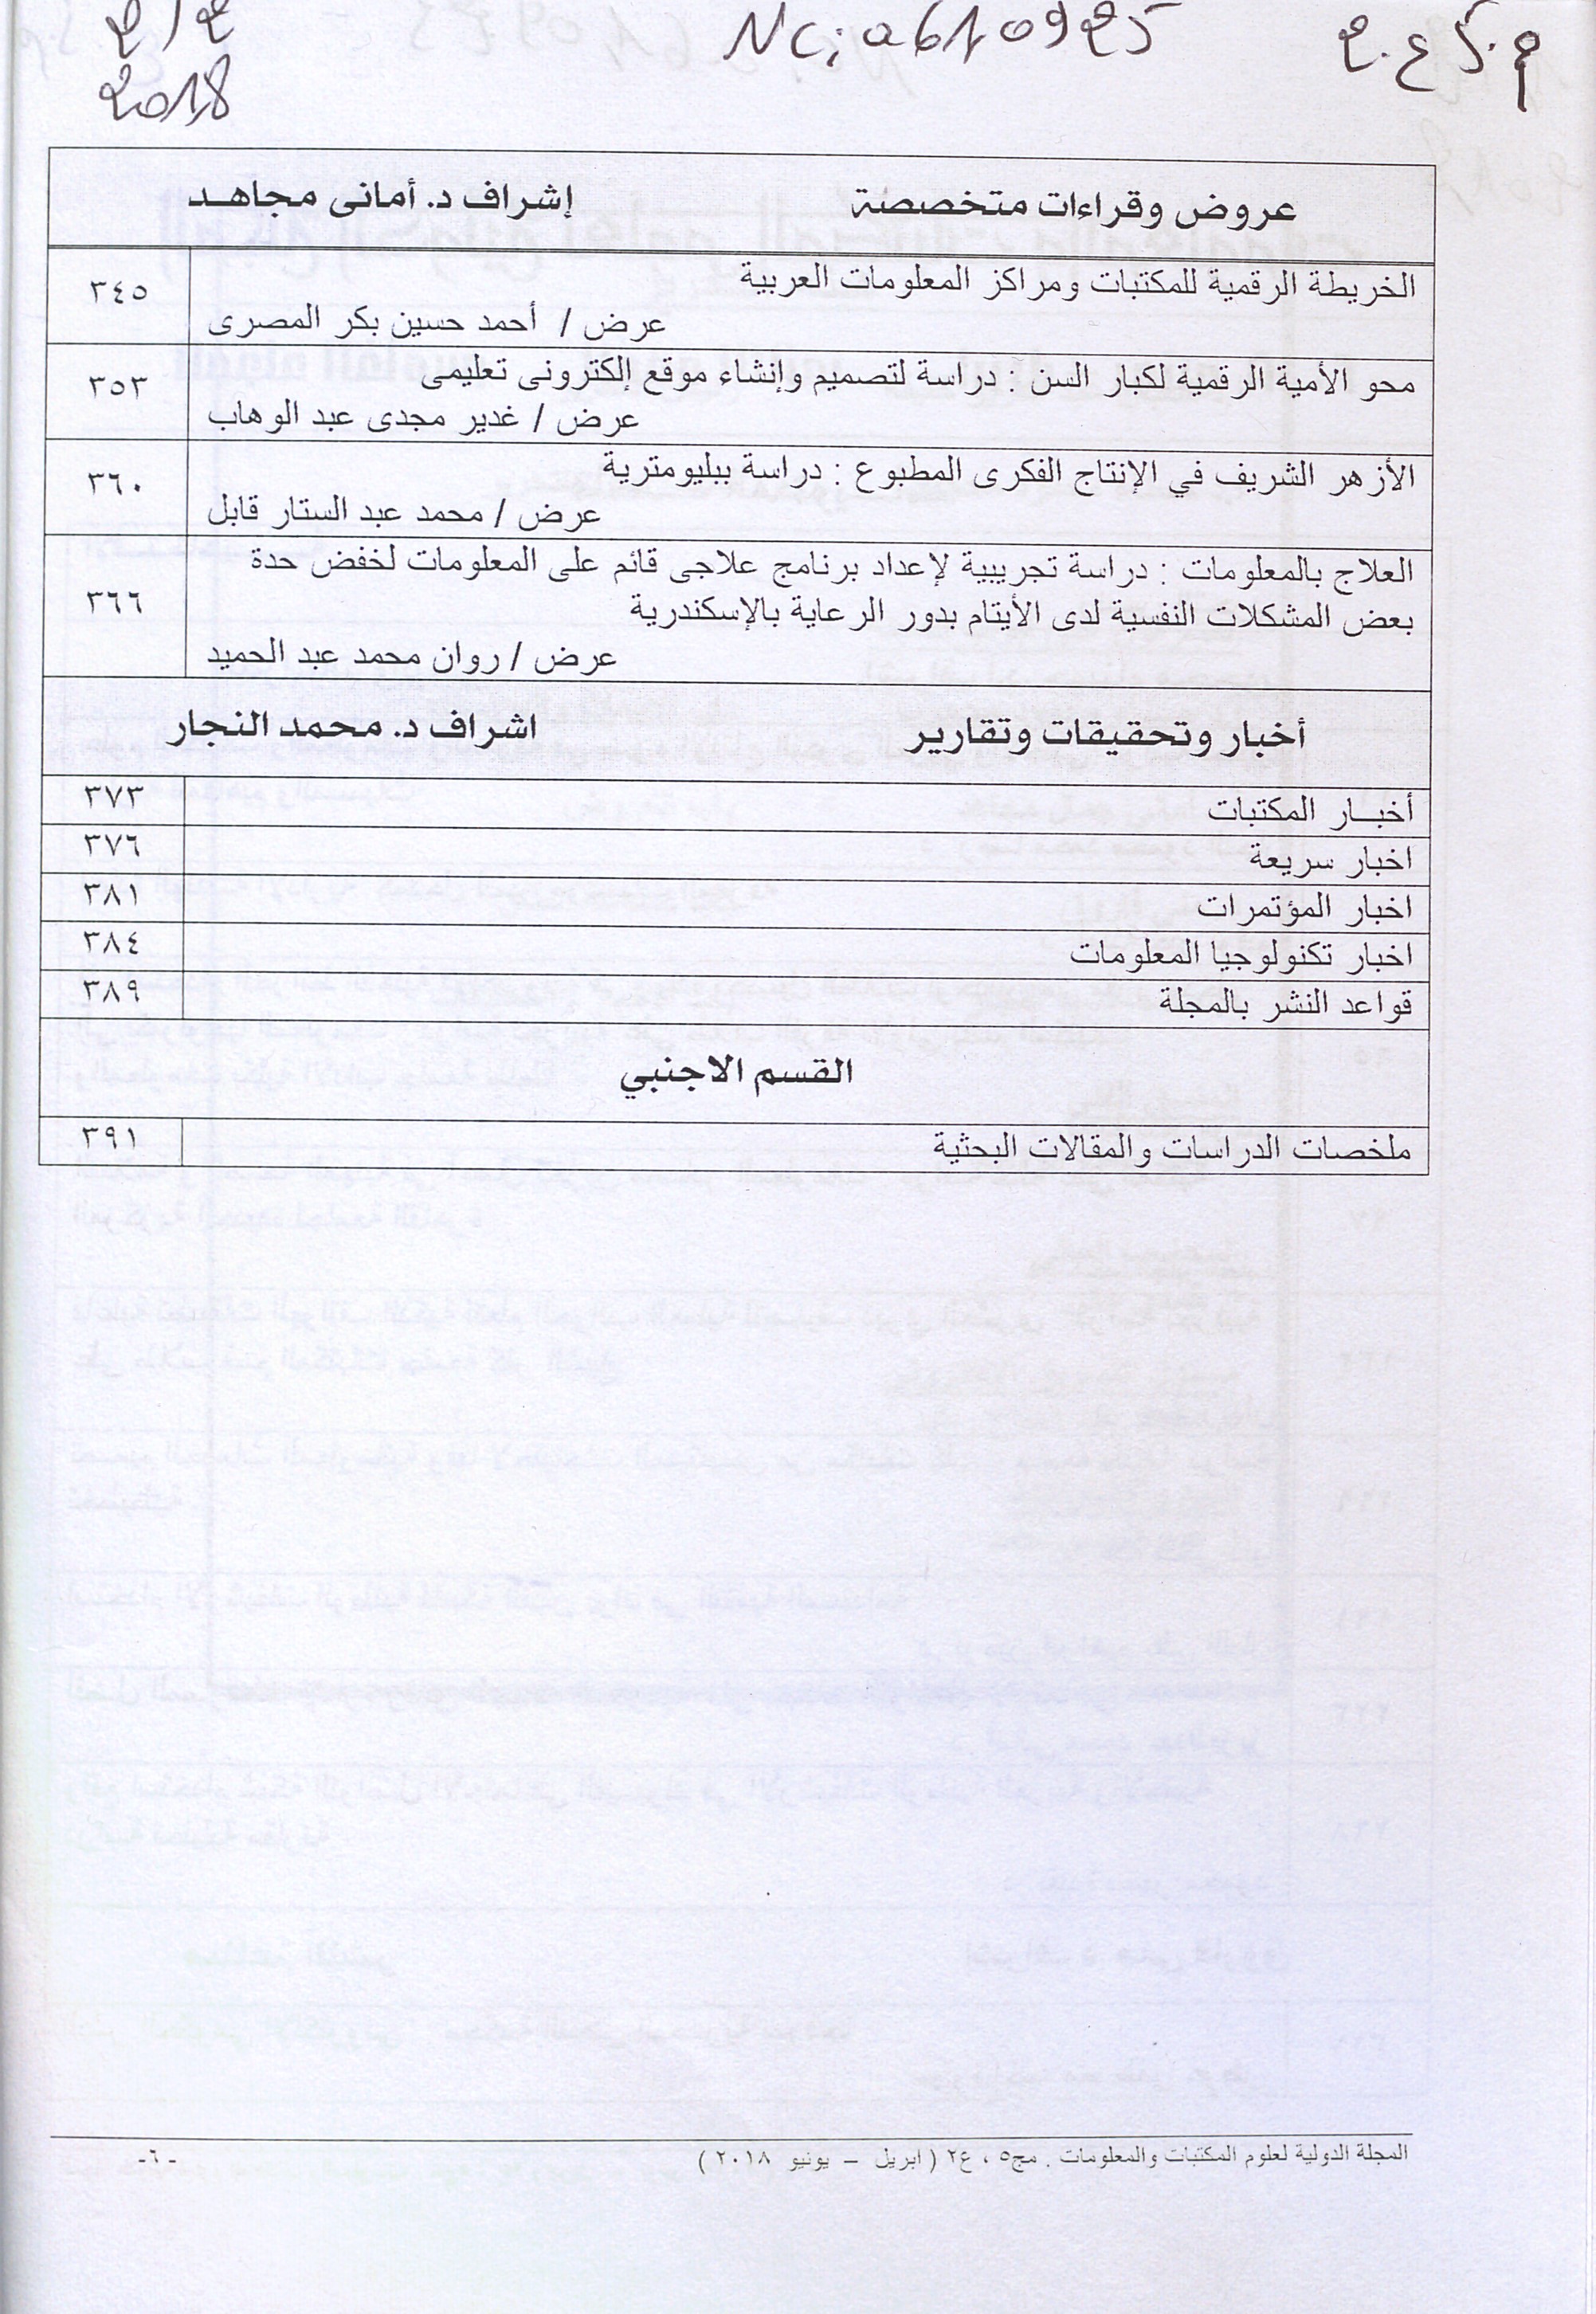 م.5 ع.2
NC: a610925
2/2
2018
عروض وقراءات متخصصة إشراف د. أمانى مجاهـد
الخريطة الرقمية للمكتبات ومراكز المعلومات العربية
عرض / أحمد حسين بكر المصرى
٣٤٥
محو الأمية الرقمية لكبار السن : دراسة لتصميم وإنشاء موقع إلكترونى تعليمى
عرض / غدير مجدى عبد الوهاب
٣٥٣
الأزهر الشريف في الإنتاج الفكرى المطبوع : دراسة ببليومترية
عرض / محمد عبد الستار قابل
٣٦٠
العلاج بالمعلومات : دراسة تجريبية لإعداد برنامج علاجى قائم على المعلومات لخفض حدة
بعض المشكلات النفسية لدى الأيتام بدور الرعاية بالإسكندرية
عرض / روان محمد عبد الحميد
٣٦٦
أخبار وتحقيقات وتقارير اشراف د. محمد النجار
أخبـــار المكتبات ٣٧٣
اخبار سريعة ٣٧٦
اخبار المؤتمرات ٣٨١
اخبار تكنولوجيا المعلومات ٣٨٤
قواعد النشر بالمجلة ٣٨٩
القسم الاجنبي
ملخصات الدراسات والمقالات البحثية ٣٩١
المجلة الدولية لعلوم المكتبات والمعلومات . مج٥ ، ع٢ ( ابريل – يونيو ٢٠١٨ ) - ٦-